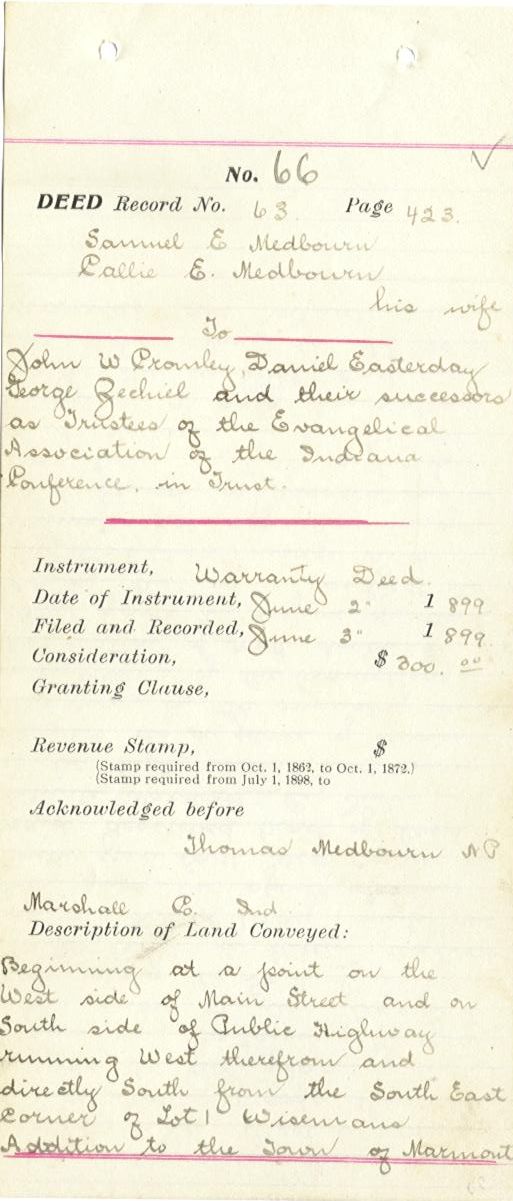 No. 66
DEED Record No. 63. Page 423.
Samuel E Medbourn
Callie E. Medbourn
his wife
To
John W Cromley, Daniel Easterday
George Zechiel and their successors
as Trustees of the Evangelical
Association of the Indiana
Conference, in Trust.
Instrument, Warranty Deed.
Date of Instrument, June 2" 1899
Filed and Recorded, June 3" 1899.
Consideration, $ 300.00
Granting Clause,
Revenue Stamp, $
(Stamp required from Oct. 1, 1862, to Oct. 1, 1872.)
(Stamp required from July 1, 1898, to
Acknowledged before
Thomas Medbourn NP
Marshall Co. Ind.
Description of Land Conveyed:
Beginning at a point on the
West side of Main Street and on
South side of Public Highway
running West therefrom and
directly South from the South East
Corner of Lot 1 Wisemans
Addition to the Town of Marmont